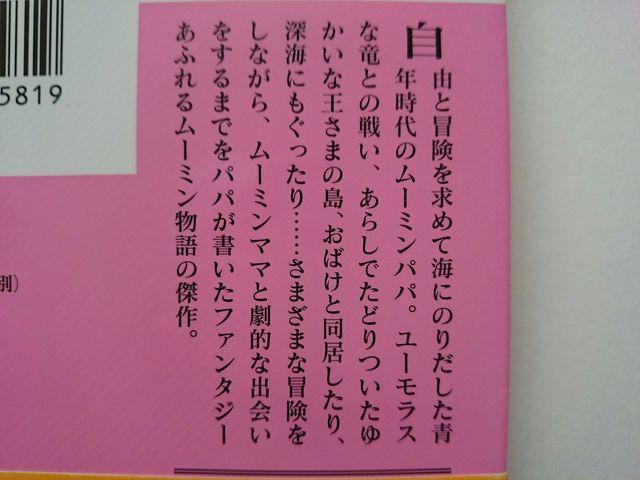 自由と冒険を求めて海にのりだした青
年時代のムーミンパパ。ユーモラス
な竜との戦い、あらしでたどりついたゆ
かいな王さまの島、おばけと同居したり、
深海にもぐったり……さまざまな冒険を
しながら、ムーミンママと劇的な出会い
をするまでをパパが書いたファンタジー
あふれるムーミン物語の傑作。
5819
別)